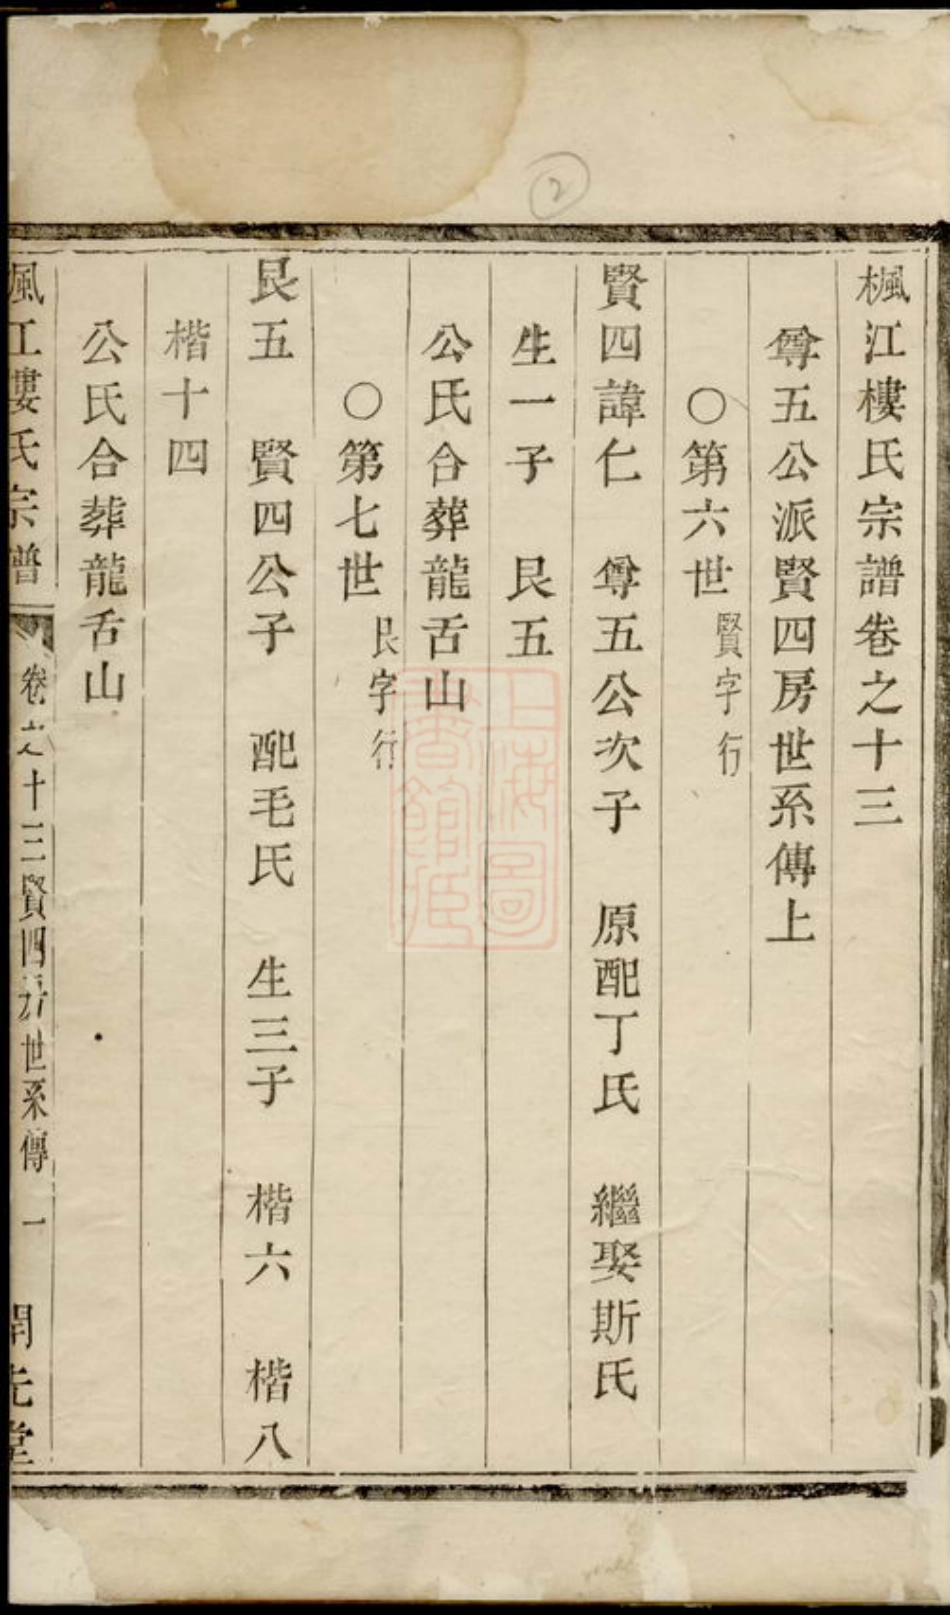 楓江樓氏宗譜卷之十三
尊五公派賢四房世系傳上
○第六世 賢字行
賢四諱仁 尊五公次子 原配丁氏 繼娶斯氏
生一子 艮五
公氏合葬龍舌山
○第七世 艮字行
艮五 賢四公子 配毛氏 生三子 楷六 楷八
楷十四
公氏合葬龍舌山
楓江婁氏宗譜 卷之十三賢四房世系傳 一 開先堂
上海圖
書館藏
2